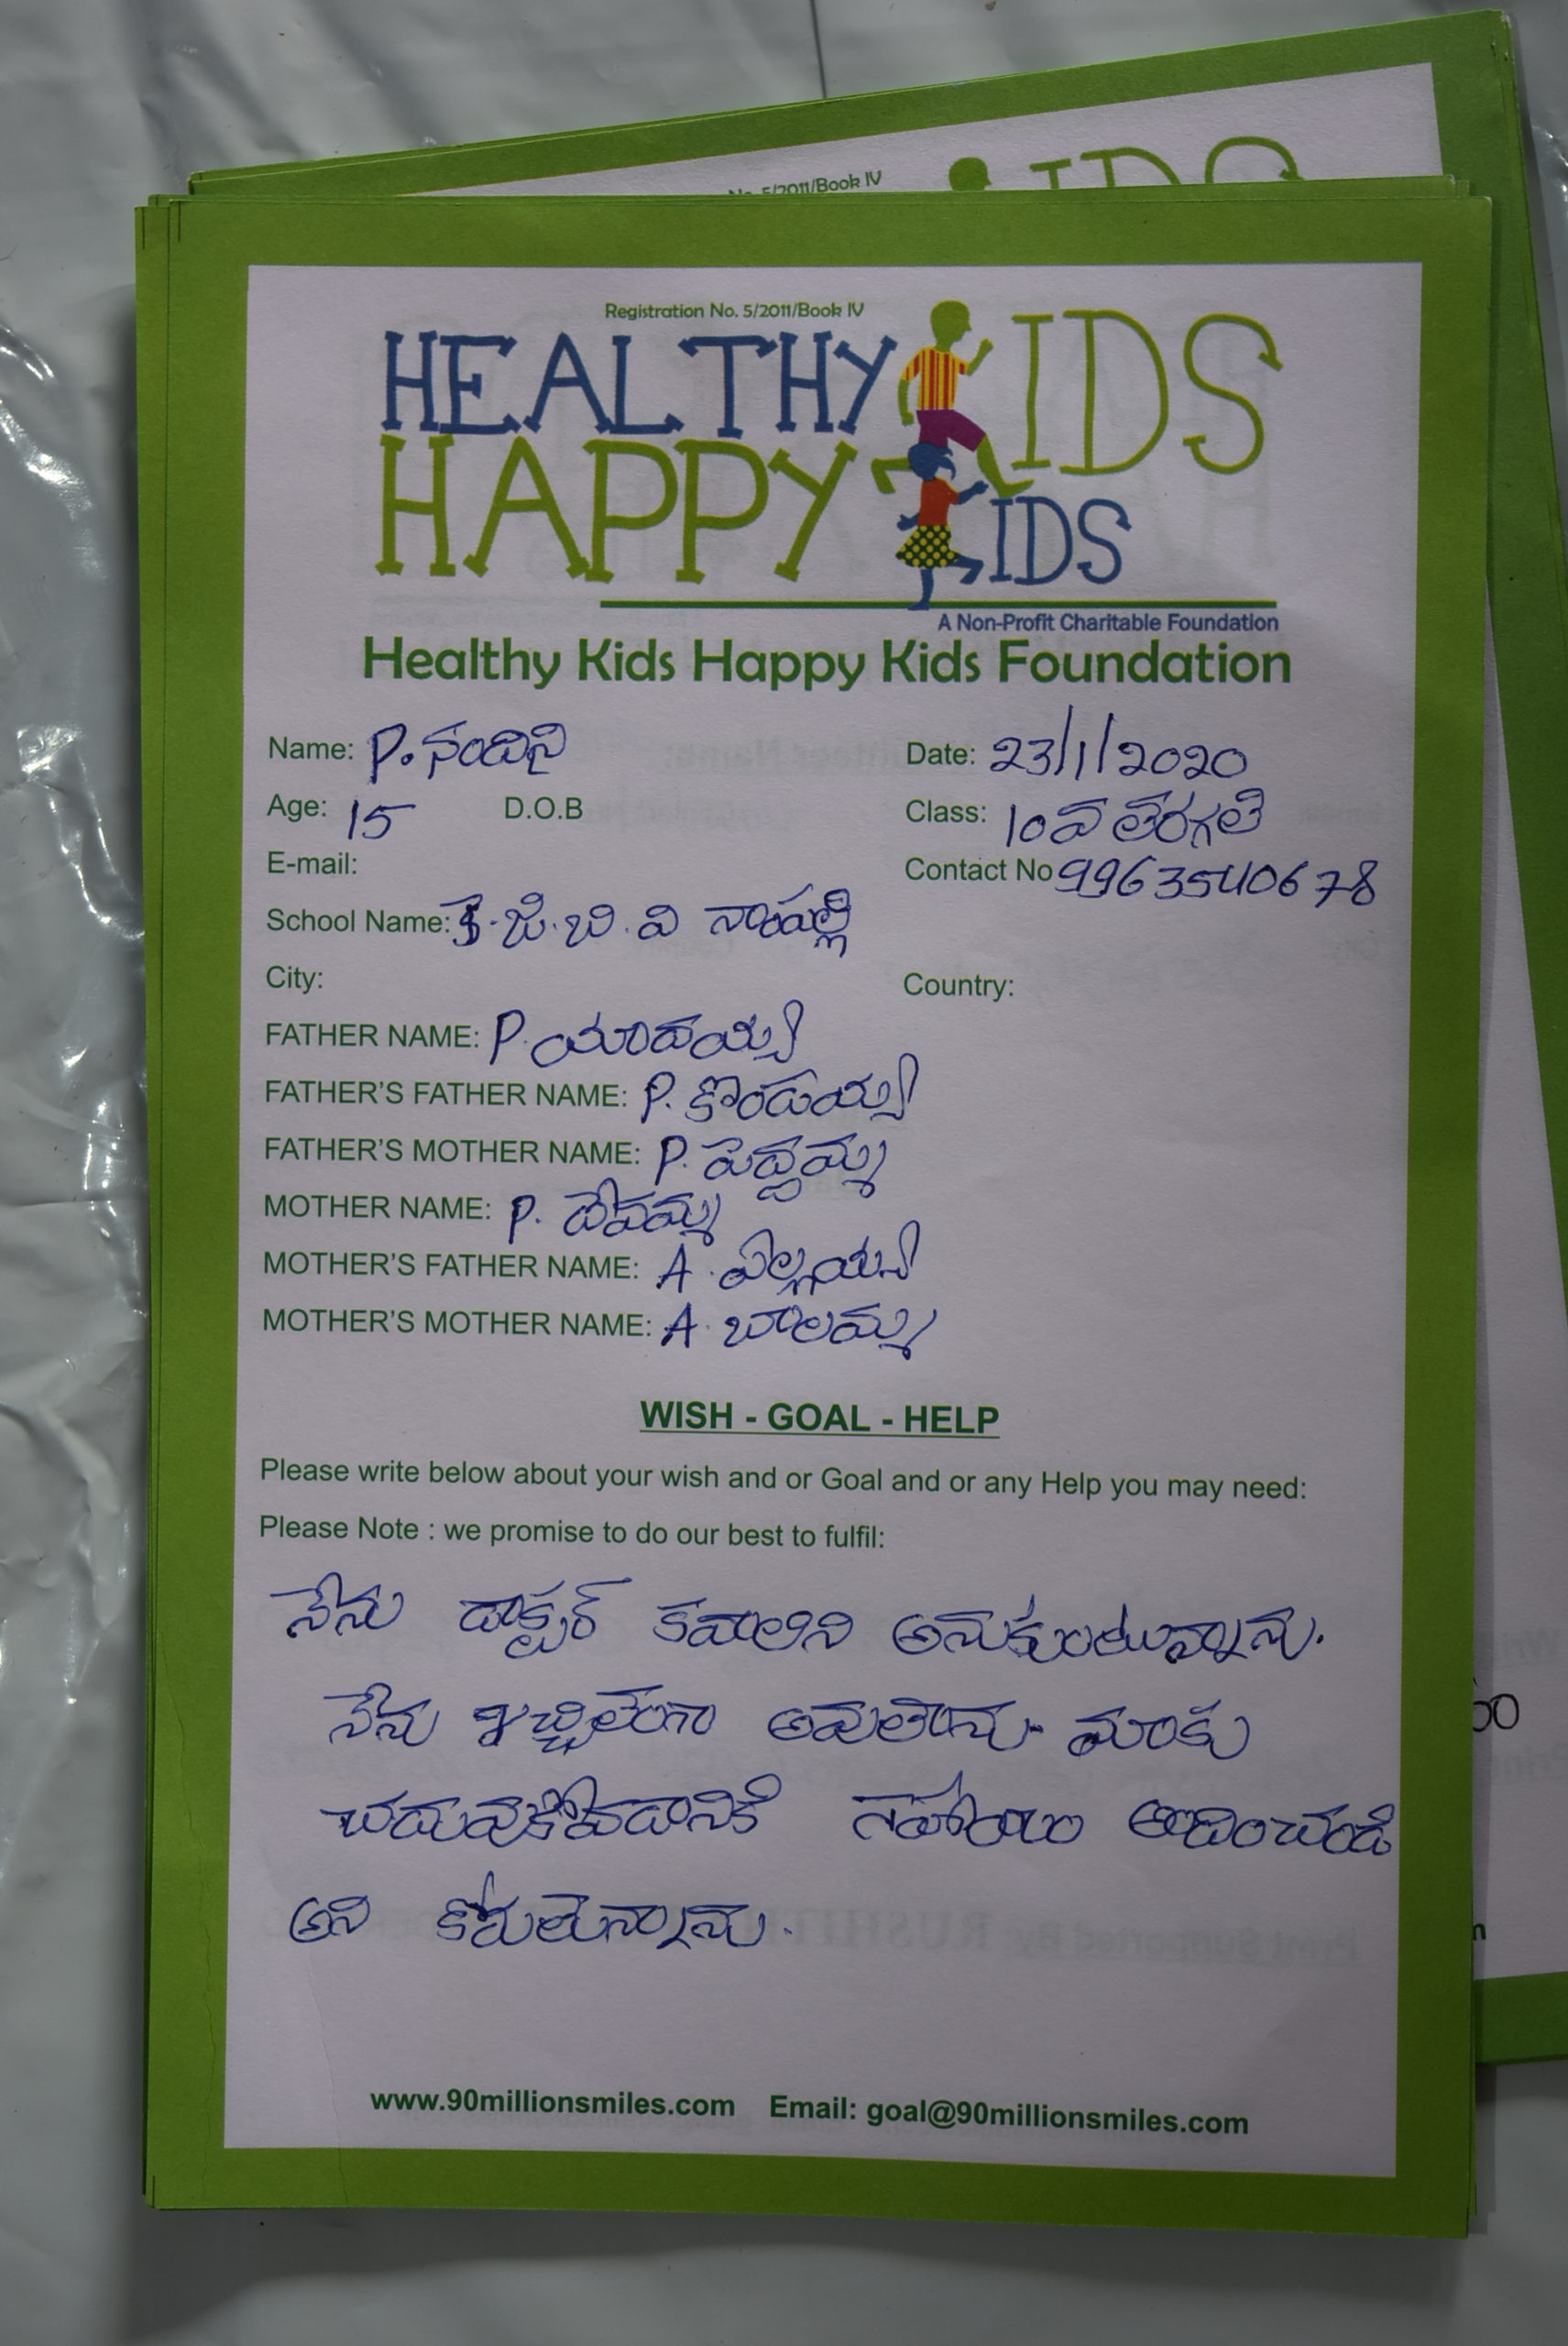 No. 5/2011/Book IV
IDS
Registration No. 5/2011/Book IV
HEALTHY KIDS
HAPPY KIDS
A Non-Profit Charitable Foundation
Healthy Kids Happy Kids Foundation
Name: P. నందిని Date: 23/1/2020
Age: 15 D.O.B Class: 10వ తరగతి
E-mail: Contact No 9963540678
School Name: కె.జి.బి.వి నాంపల్లి
City: Country:
FATHER NAME: P. యాదయ్య
FATHER'S FATHER NAME: P. కొండయ్య
FATHER'S MOTHER NAME: P. పెద్దమ్మ
MOTHER NAME: P. దేవమ్మ
MOTHER'S FATHER NAME: A. ఎల్లయ్య
MOTHER'S MOTHER NAME: A. బాలమ్మ
WISH - GOAL - HELP
Please write below about your wish and or Goal and or any Help you may need:
Please Note : we promise to do our best to fulfil:
నేను డాక్టర్ కవాలిని అనుకుంటున్నాను.
నేను అవుతాను. మాకు
చదువుకోవడానికి సహాయం అందించండి
అని కోరుతున్నాను.
www.90millionsmiles.com Email: goal@90millionsmiles.com